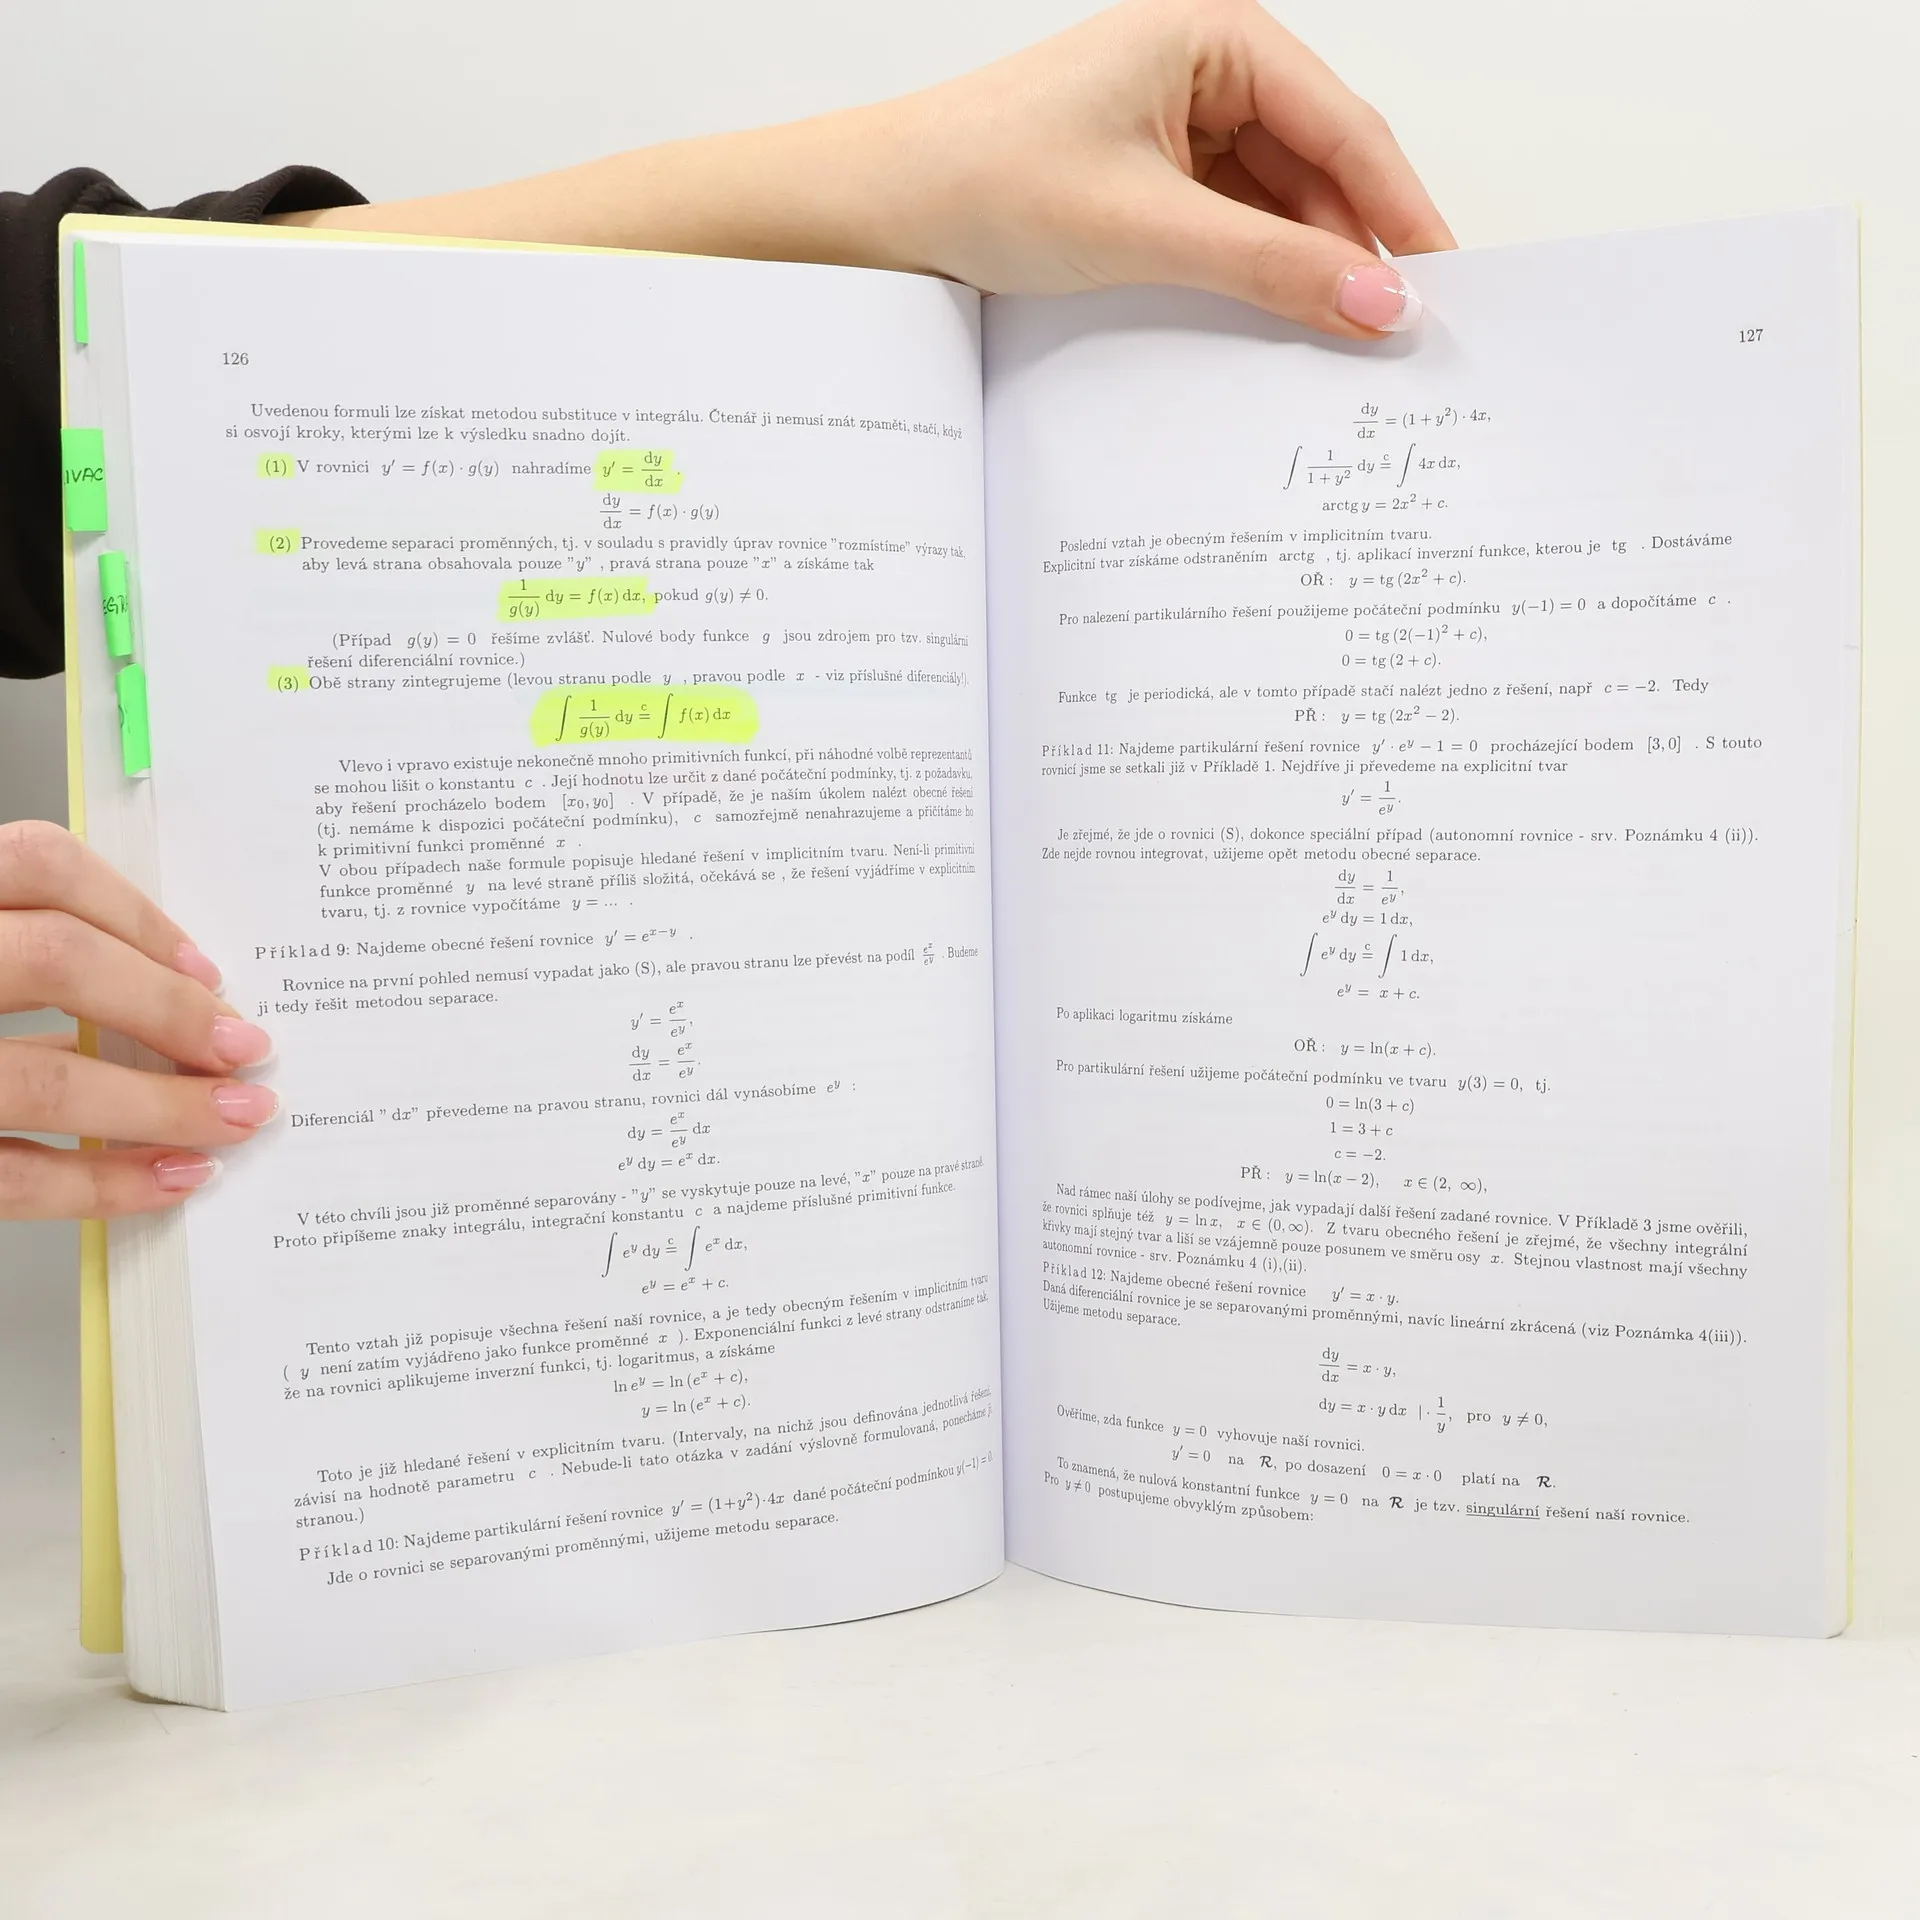 IVAC
126
Uvedenou formuli lze získat metodou substituce v integrálu. Čtenář ji nemusí znát zpaměti, stačí, když
si osvojí kroky, kterými lze k výsledku snadno dojít.
(1) V rovnici y′ = f(x) · g(y) nahradíme y′ = dy/dx .
dy/dx = f(x) · g(y)
(2) Provedeme separaci proměnných, tj. v souladu s pravidly úprav rovnice "rozmístíme" výrazy tak,
aby levá strana obsahovala pouze "y" , pravá strana pouze "x" a získáme tak
1/g(y) dy = f(x) dx, pokud g(y) ≠ 0.
(Případ g(y) = 0 řešíme zvlášť. Nulové body funkce g jsou zdrojem pro tzv. singulární
řešení diferenciální rovnice.)
(3) Obě strany zintegrujeme (levou stranu podle y , pravou podle x - viz příslušné diferenciály!).
∫ 1/g(y) dy =^c ∫ f(x) dx
Vlevo i vpravo existuje nekonečně mnoho primitivních funkcí, při náhodné volbě reprezentantů
se mohou lišit o konstantu c . Její hodnotu lze určit z dané počáteční podmínky, tj. z požadavku,
aby řešení procházelo bodem [x₀, y₀] . V případě, že je naším úkolem nalézt obecné řešení
(tj. nemáme k dispozici počáteční podmínku), c samozřejmě nenahrazujeme a přičítáme ho
k primitivní funkci proměnné x .
V obou případech naše formule popisuje hledané řešení v implicitním tvaru. Není-li primitivní
funkce proměnné y na levé straně příliš složitá, očekává se , že řešení vyjádříme v explicitním
tvaru, tj. z rovnice vypočítáme y = ... .
Příklad 9: Najdeme obecné řešení rovnice y′ = e^(x−y) .
Rovnice na první pohled nemusí vypadat jako (S), ale pravou stranu lze převést na podíl e^x/e^y . Budeme
ji tedy řešit metodou separace.
y′ = e^x/e^y,
dy/dx = e^x/e^y.
Diferenciál " dx" převedeme na pravou stranu, rovnici dál vynásobíme e^y :
dy = e^x/e^y dx
e^y dy = e^x dx.
V této chvíli jsou již proměnné separovány - "y" se vyskytuje pouze na levé, "x" pouze na pravé straně.
Proto připíšeme znaky integrálu, integrační konstantu c a najdeme příslušné primitivní funkce.
∫ e^y dy =^c ∫ e^x dx,
e^y = e^x + c.
Tento vztah již popisuje všechna řešení naší rovnice, a je tedy obecným řešením v implicitním tvaru
( y není zatím vyjádřeno jako funkce proměnné x ). Exponenciální funkci z levé strany odstraníme tak,
že na rovnici aplikujeme inverzní funkci, tj. logaritmus, a získáme
ln e^y = ln (e^x + c),
y = ln (e^x + c).
Toto je již hledané řešení v explicitním tvaru. (Intervaly, na nichž jsou definována jednotlivá řešení,
závisí na hodnotě parametru c . Nebude-li tato otázka v zadání výslovně formulovaná, ponecháme ji
stranou.)
Příklad 10: Najdeme partikulární řešení rovnice y′ = (1+y²)·4x dané počáteční podmínkou y(−1) = 0.
Jde o rovnici se separovanými proměnnými, užijeme metodu separace.
127
dy/dx = (1 + y²) · 4x,
∫ 1/(1 + y²) dy =^c ∫ 4x dx,
arctg y = 2x² + c.
Poslední vztah je obecným řešením v implicitním tvaru.
Explicitní tvar získáme odstraněním arctg , tj. aplikací inverzní funkce, kterou je tg . Dostáváme
OŘ : y = tg (2x² + c).
Pro nalezení partikulárního řešení použijeme počáteční podmínku y(−1) = 0 a dopočítáme c .
0 = tg (2(−1)² + c),
0 = tg (2 + c).
Funkce tg je periodická, ale v tomto případě stačí nalézt jedno z řešení, např c = −2. Tedy
PŘ : y = tg (2x² − 2).
Příklad 11: Najdeme partikulární řešení rovnice y′ · e^y − 1 = 0 procházející bodem [3, 0] . S touto
rovnicí jsme se setkali již v Příkladě 1. Nejdříve ji převedeme na explicitní tvar
y′ = 1/e^y.
Je zřejmé, že jde o rovnici (S), dokonce speciální případ (autonomní rovnice - srv. Poznámku 4 (ii)).
Zde nejde rovnou integrovat, užijeme opět metodu obecné separace.
dy/dx = 1/e^y,
e^y dy = 1 dx,
∫ e^y dy =^c ∫ 1 dx,
e^y = x + c.
Po aplikaci logaritmu získáme
OŘ : y = ln(x + c).
Pro partikulární řešení užijeme počáteční podmínku ve tvaru y(3) = 0, tj.
0 = ln(3 + c)
1 = 3 + c
c = −2.
PŘ : y = ln(x − 2), x ∈ (2, ∞),
Nad rámec naší úlohy se podívejme, jak vypadají další řešení zadané rovnice. V Příkladě 3 jsme ověřili,
že rovnici splňuje též y = ln x, x ∈ (0, ∞). Z tvaru obecného řešení je zřejmé, že všechny integrální
křivky mají stejný tvar a liší se vzájemně pouze posunem ve směru osy x. Stejnou vlastnost mají všechny
autonomní rovnice - srv. Poznámku 4 (i),(ii).
Příklad 12: Najdeme obecné řešení rovnice y′ = x · y.
Daná diferenciální rovnice je se separovanými proměnnými, navíc lineární zkrácená (viz Poznámka 4(iii)).
Užijeme metodu separace.
dy/dx = x · y,
dy = x · y dx | · 1/y, pro y ≠ 0,
Ověříme, zda funkce y = 0 vyhovuje naší rovnici.
y′ = 0 na R, po dosazení 0 = x · 0 platí na R.
To znamená, že nulová konstantní funkce y = 0 na R je tzv. singulární řešení naší rovnice.
Pro y ≠ 0 postupujeme obvyklým způsobem: